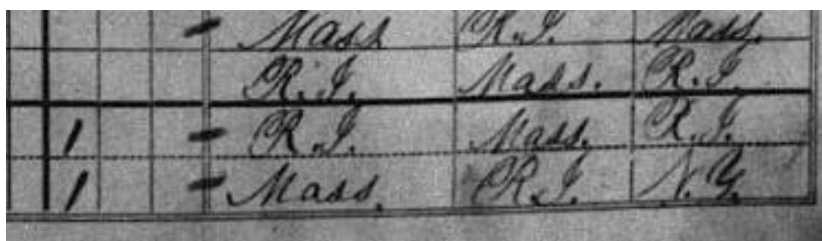 Mass R.I. Mass.
R.I. Mass. R.I.
1 - R.I. Mass. R.I.
1 - Mass. R.I. N.Y.